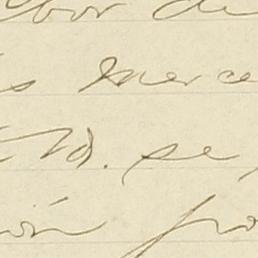 por de
s merce
Vd. se
ión po